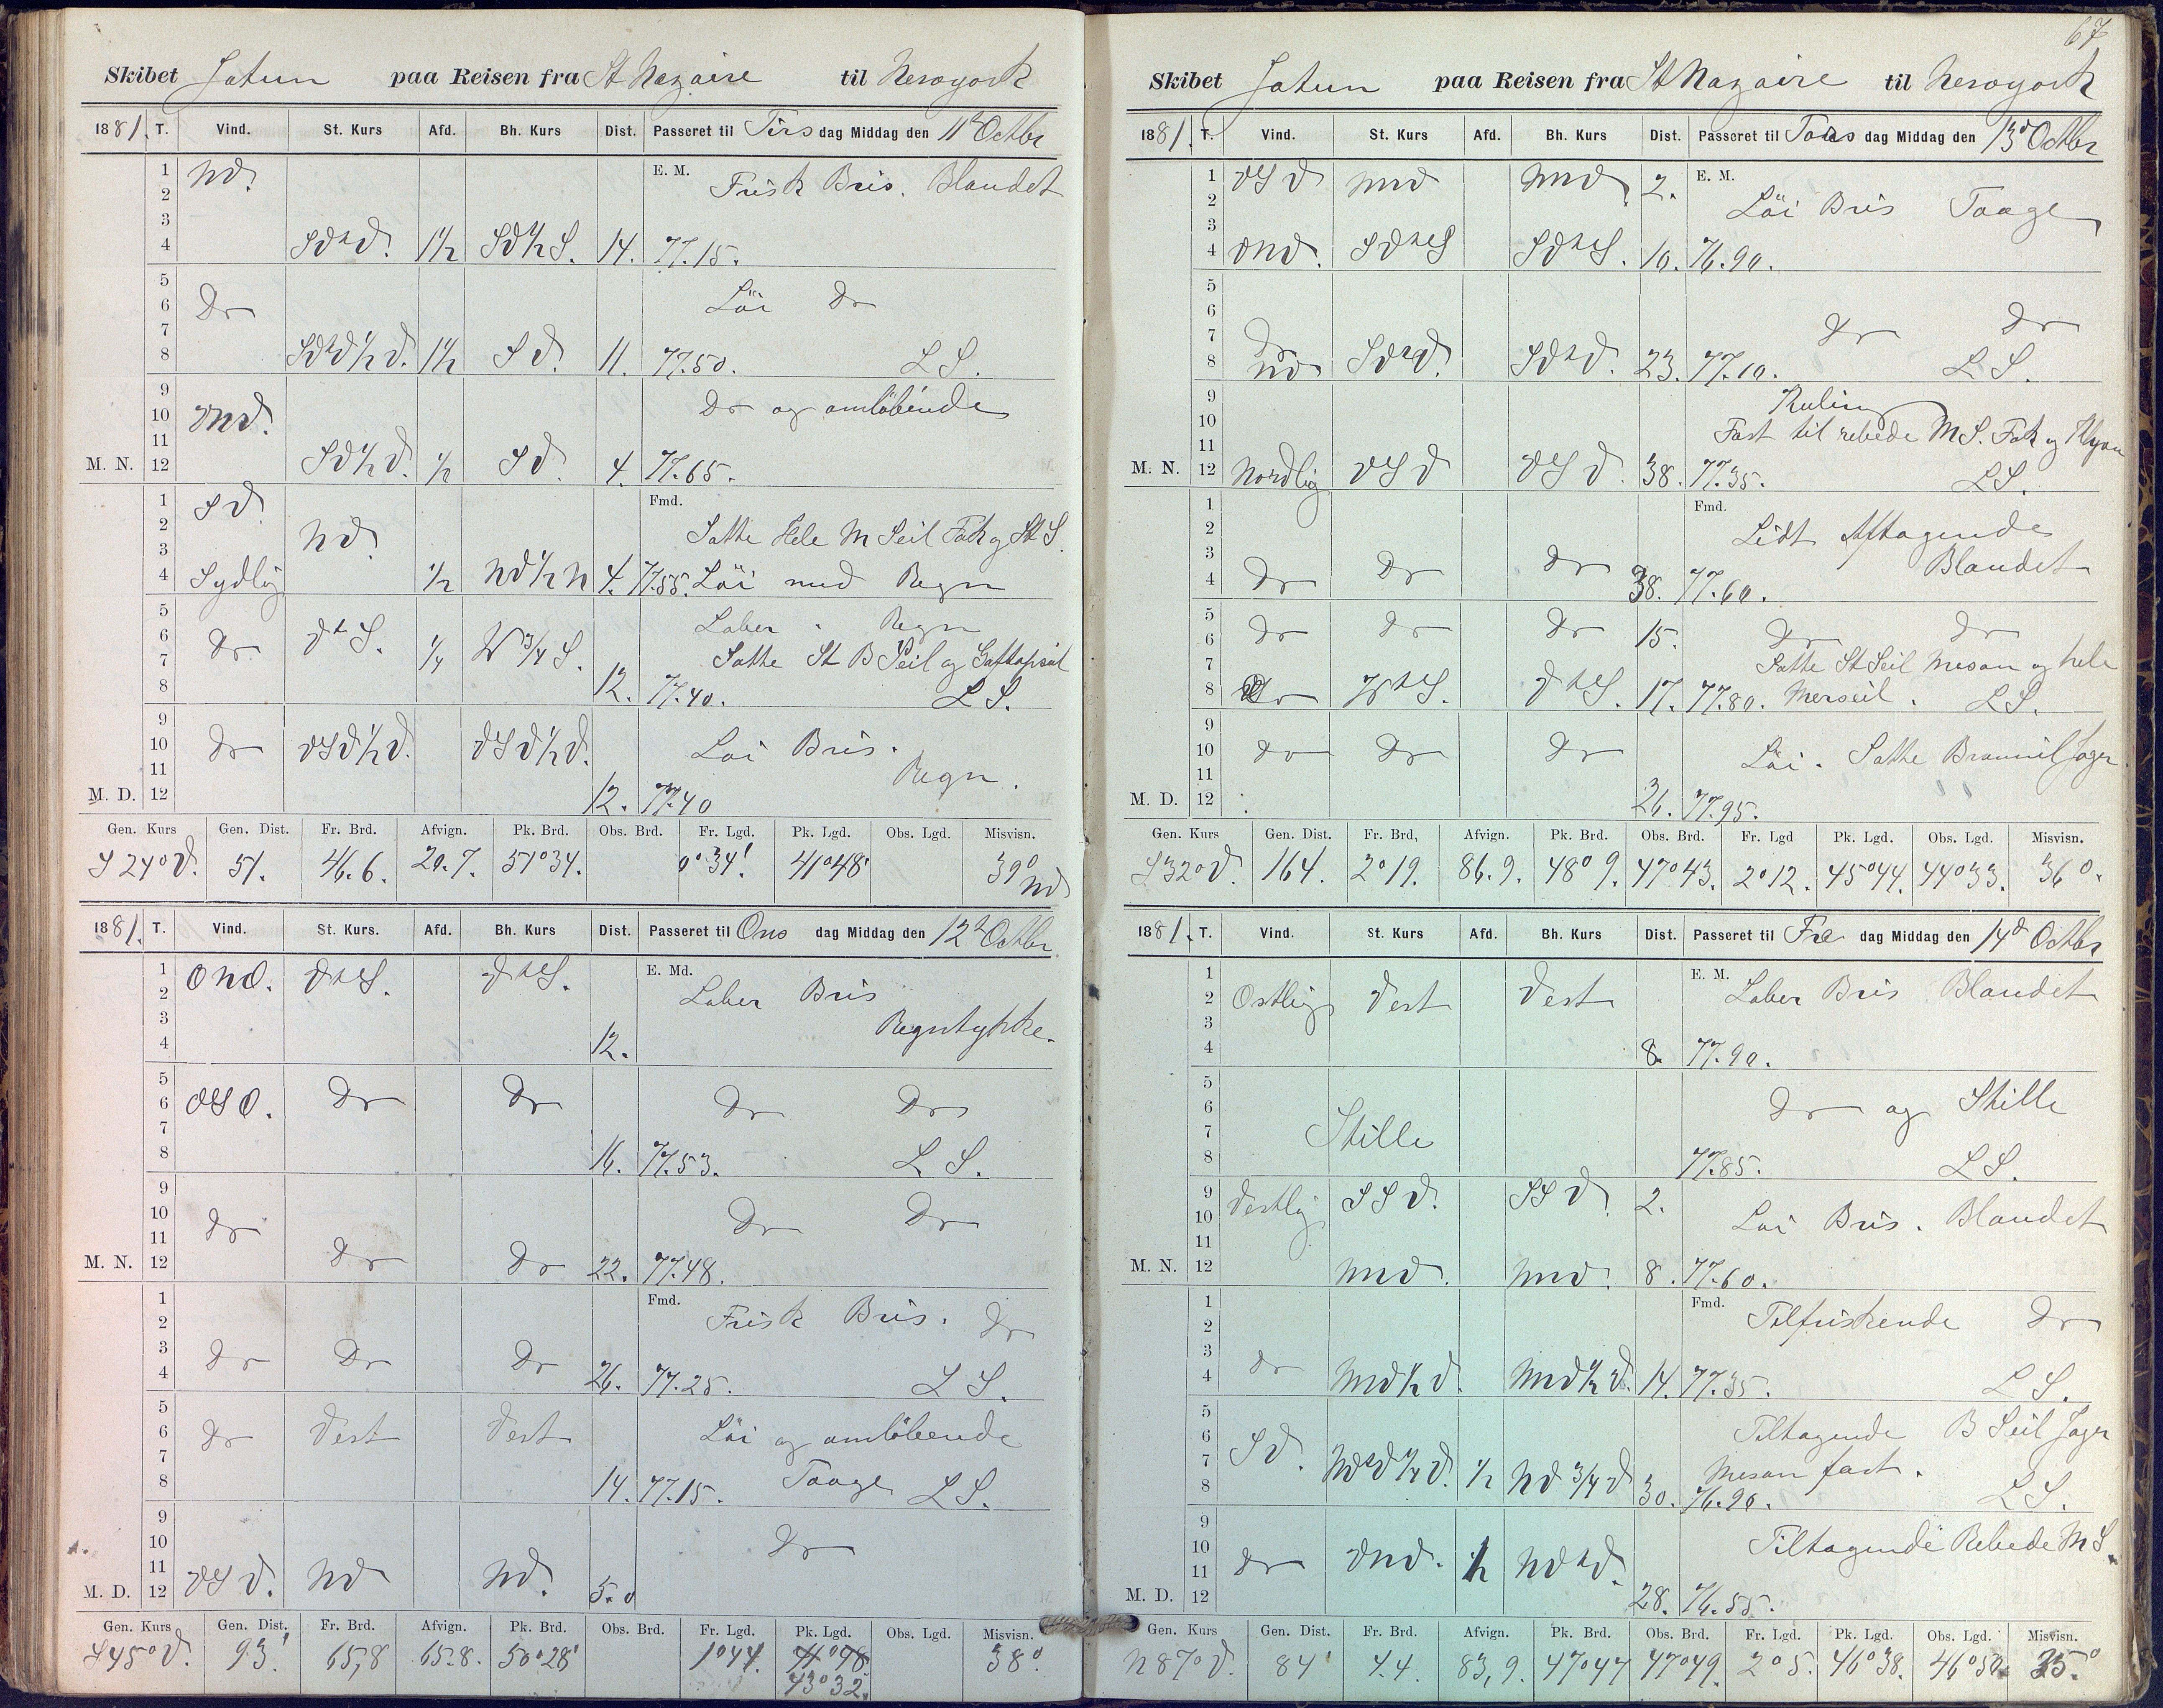 Skibet Jotun paa Reisen fra St Nazaire til Newyork
1881. T. Vind. St. Kurs Afd. Bh. Kurs Dist. Passeret til Tirs dag Middag den 11te Octbr
1 NV. E. M. Frisk Bris. Blandet
2
3
4 SVtV. 1½ SV½S. 14. 77.15.
5
6 Do Löi Do
7
8 SVtV½V. 1½ SV. 11. 77.50. L S.
9
10 VNV. Do og omlöbende
11
M. N. 12 SV½V. ½ SV. 4. 77.65.
1 SV. Fmd.
2 NV. Satte Hele M Seil Fok og St S.
3
4 Sydlig ½ NV½N 4. 77.55. Löi med Regn
5 Laber " Regn
6 Do VtS. ¼ W¾S. Satte St B Seil og Gaftopseil
7
8 12. 77.40. L S.
9
10 Do VSV½V. VSV½V. Loi Bris.
11 Regn.
M. D. 12 12. 77.40
Gen. Kurs Gen. Dist. Fr. Brd. Afvign. Pk. Brd. Obs. Brd. Fr. Lgd. Pk. Lgd. Obs. Lgd. Misvisn.
S 24° V. 51. 46.6. 20.7. 51°34. 0°34' 41°48' 39° NV
1881. T. Vind. St. Kurs. Afd. Bh. Kurs Dist. Passeret til Ons dag Middag den 12te Octbr
1 ONO. VtS. VtS. E. Md. Laber Bris
2
3 Regntykke.
4 12.
5
6 OSO. Do Do Do Do
7
8 16. 77.53. L S.
9
10 Do Do Do
11
M. N. 12 Do Do 22. 77.48.
1 Fmd. Frisk Bris. Do
2
3 Do Do Do
4 26. 77.25. L S.
5
6 Do Vest Vest Löi og omlöbende
7
8 14. 77.15. Taage L S.
9
10 Do
11
M. D. 12 VSV. NV NV. 5.0
Gen. Kurs Gen. Dist. Fr. Brd. Afvign. Pk. Brd. Obs. Brd. Fr. Lgd. Pk. Lgd. Obs. Lgd. Misvisn.
S 45° V. 93' 65,8 65.8. 50°28' 1°44. 38°.
43°32.
67
Skibet Jotun paa Reisen fra St Nazaire til Newyork
1881. T. Vind. St. Kurs Afd. Bh. Kurs Dist. Passeret til Tors dag Middag den 13de Octbr
1 VSV NNV NNV 2. E. M.
2 Löi Bris Taage
3
4 VNV. SVtS SVtS. 10. 76.90.
5
6 Do Do
7 Do
8 NV SVtV. SVtV. 23. 77.10. L S.
9 Kuling
10 Fast til rebede M S. Fok og Klyver
11
M. N. 12 Nordlig VSV VSV. 38. 77.35. L S.
1 Fmd.
2 Lidt Aftagende
3 Blandet
4 Do Do Do 38. 77.60.
5
6 Do Do Do 15. Do Do
7 Satte St Seil Mesan og hele
8 Do VtS. VtS. 17. 77.80. Merseil. L S.
9
10 Do Do Do Löi. Satte Bramseil Jager
11
M. D. 12 26. 77.95.
Gen. Kurs Gen. Dist. Fr. Brd, Afvign. Pk. Brd. Obs. Brd. Fr. Lgd Pk. Lgd. Obs. Lgd. Misvisn.
S 32° V. 164. 2°19. 86.9. 48°9. 47°43. 2°12. 45°44. 44°33. 36°.
1881. T. Vind. St. Kurs Afd. Bh. Kurs Dist. Passeret til Fre dag Middag den 14de Octbr
1 E. M. Laber Bris Blandet
2 Ostlig Vest Vest
3
4 8. 77.90.
5
6 Do og Stille
7 Stille
8 77.85. L S.
9 Vestlig SSV. SSV 2.
10 Loi Bris. Blandet
11
M. N. 12 NNV. NNV. 8. 77.60.
1 Fmd. Tilfriskende Do
2
3
4 Do NNV½V. NNV½V. 14. 77.35. L S.
5
6 Tiltagende B Seil Jager
7 SV. NVtV¼V. ½ NV¾V Mesan fast.
8 30. 76.90. L S.
9
10 Do VNV. ½ NVtV. Tiltagende Rebede M S.
11
M. D. 12 28. 76.55.
Gen. Kurs Gen. Dist. Fr. Brd. Afvign. Pk. Brd. Obs. Brd. Fr. Lgd. Pk. Lgd. Obs. Lgd. Misvisn.
N 87° V. 84' 4.4. 83,9. 47°47 47°49. 2°5. 46°38. 46°50. 35.°